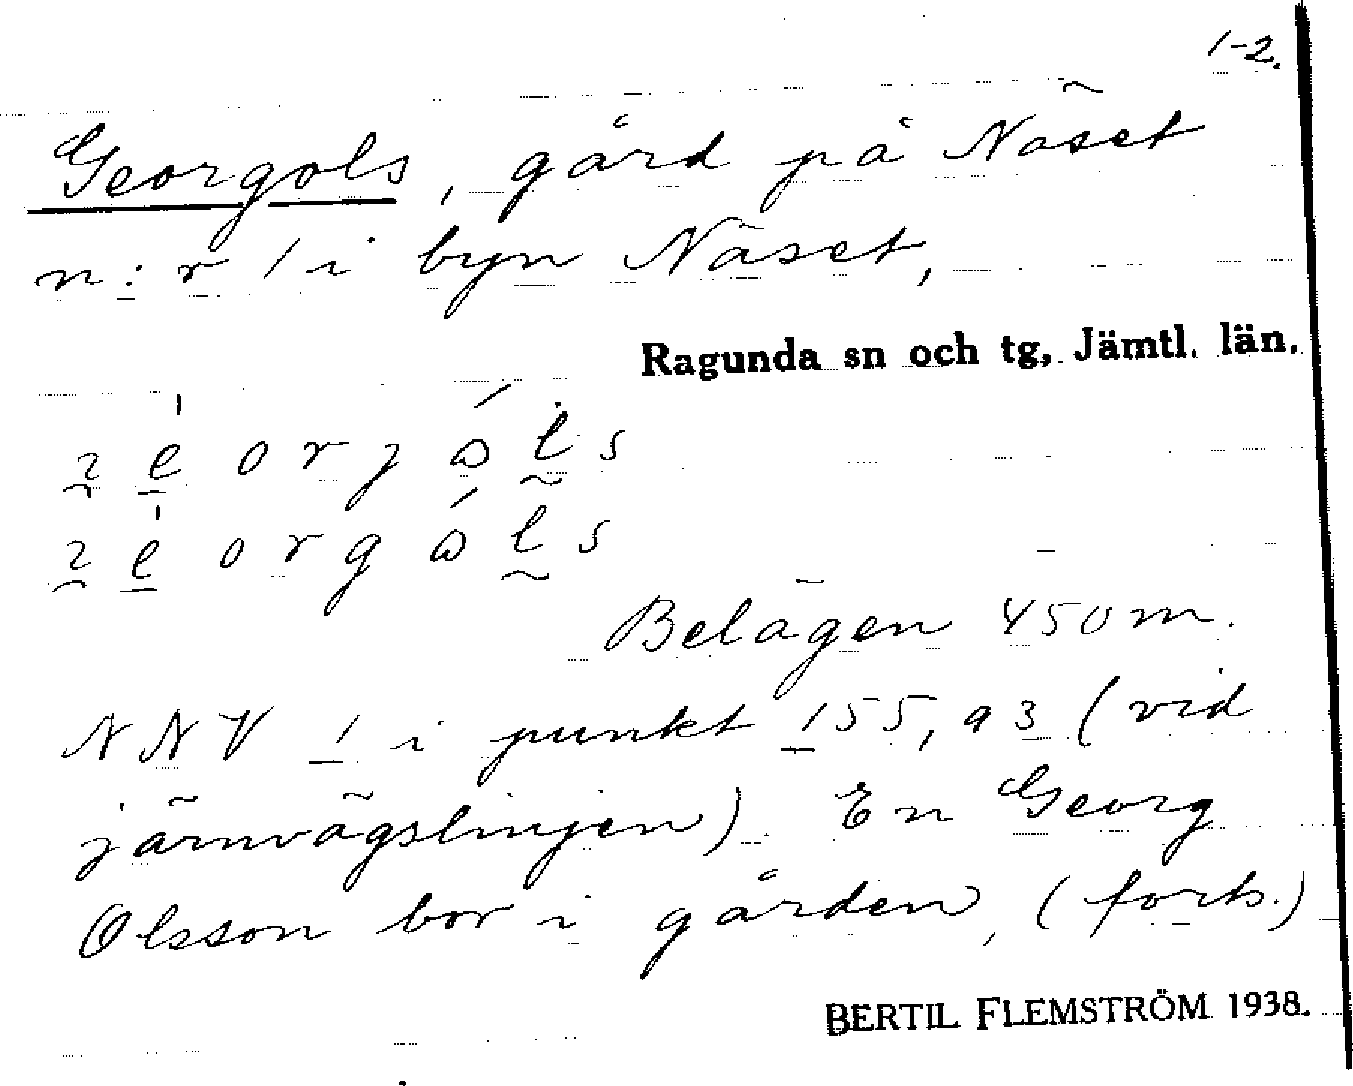 1-2.
Georgols, gård på Näset
n:r 1 i byn Näset,
Ragunda sn och tg, Jämtl. län.
Belägen 450 m.
NNV 1 i punkt 155,93 (vid
järnvägslinjen). En Georg
Olsson bor i gården, (forts.)
BERTIL FLEMSTRÖM 1938.